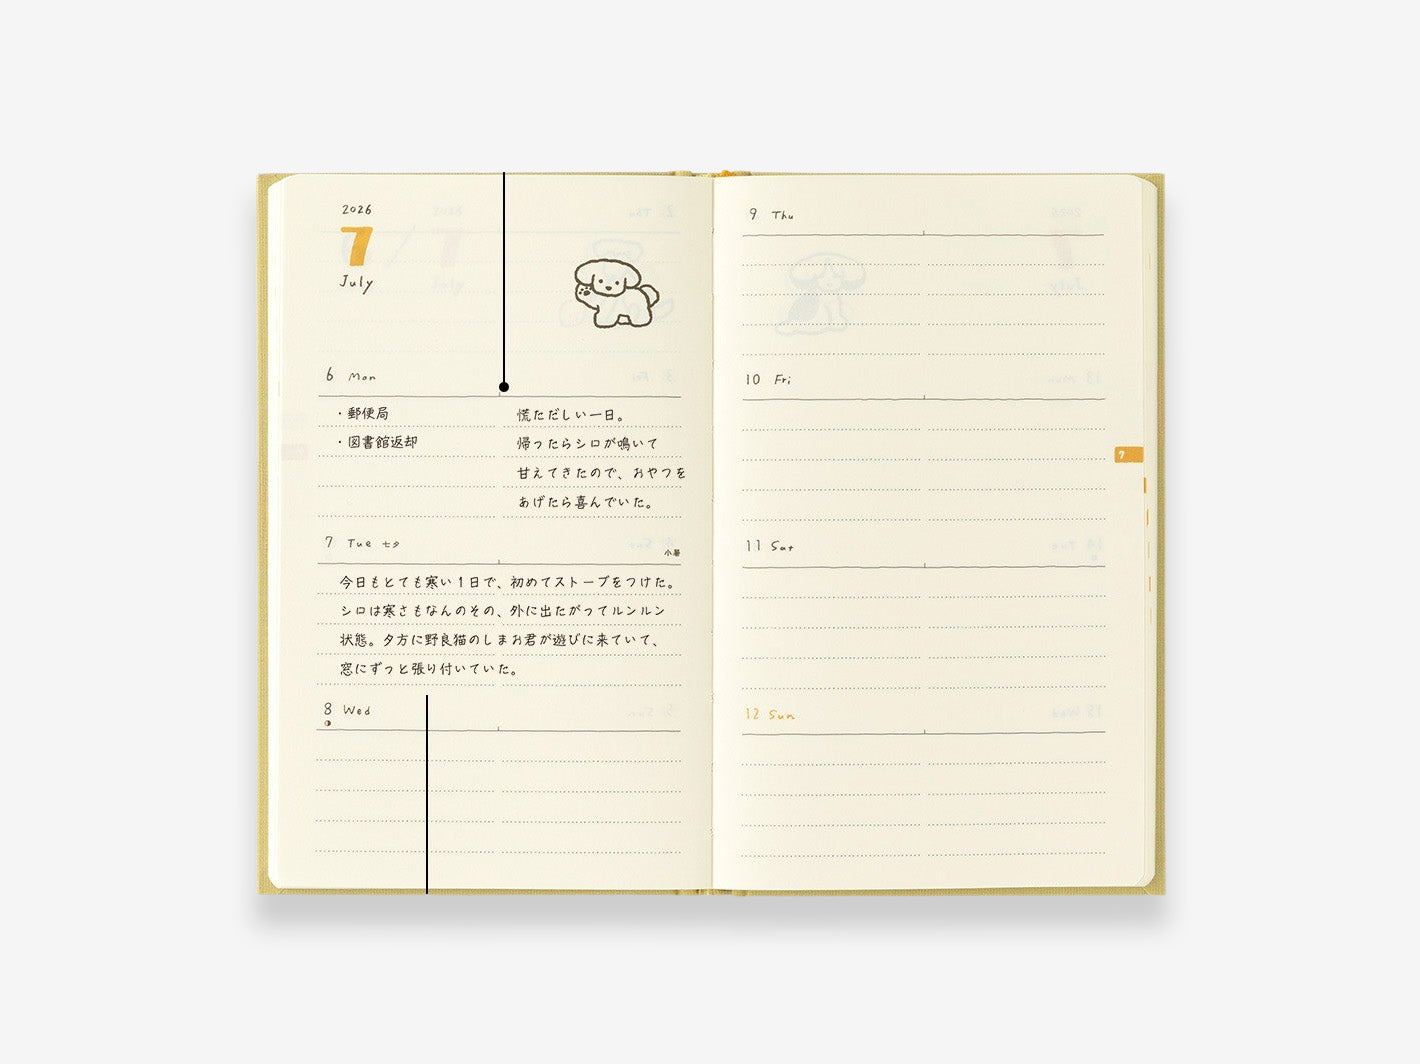 2026
7
July
6 Mon
・郵便局
・図書館返却
慌ただしい一日。
帰ったらシロが鳴いて
甘えてきたので、おやつを
あげたら喜んでいた。
7 Tue 七夕
小暑
今日もとても寒い1日で、初めてストーブをつけた。
シロは寒さもなんのその、外に出たがってルンルン
状態。夕方に野良猫のしまお君が遊びに来ていて、
窓にずっと張り付いていた。
8 Wed
9 Thu
10 Fri
11 Sat
12 Sun
7